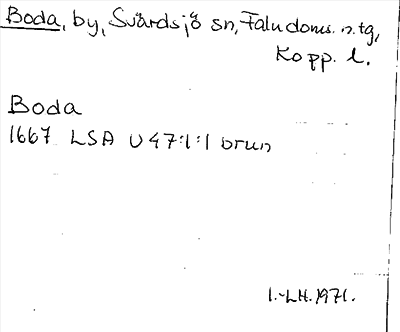 Boda, by, Svärdsjö sn, Falu doms. n. tg,
Kopp. l.
Boda
1667 LSA U 47:1:1 orun
I.-LH. 1971.